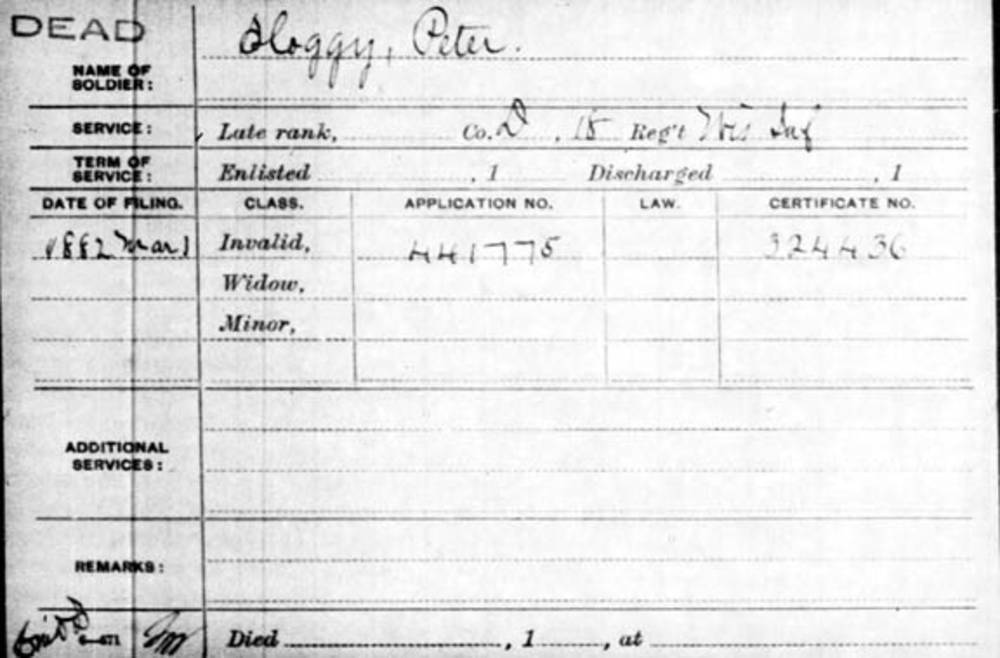 DEAD
Sloggy, Peter.
NAME OF
SOLDIER:
SERVICE: Late rank, Co. D, 15 Reg't Wis Inf
TERM OF
SERVICE: Enlisted , 1 Discharged , 1
DATE OF FILING. CLASS. APPLICATION NO. LAW. CERTIFICATE NO.
1882 Mar 1 Invalid, 441775 324436
Widow,
Minor,
ADDITIONAL
SERVICES:
REMARKS:
Died , 1 , at